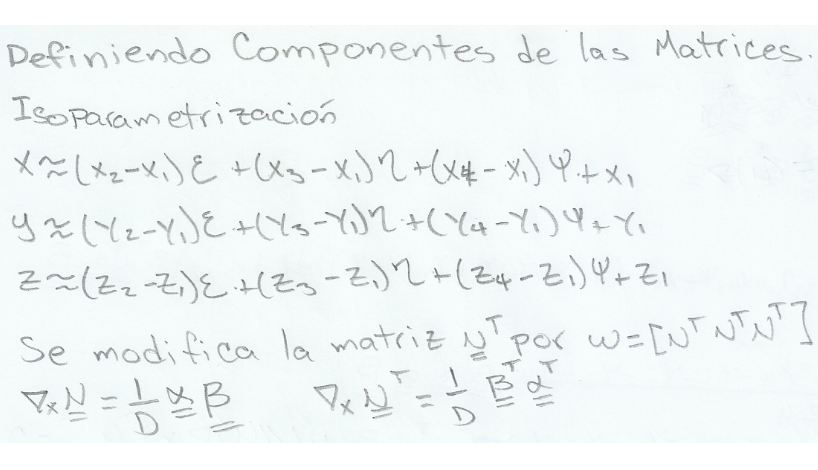 Definiendo Componentes de las Matrices.
Isoparametrización
x≈(x₂-x₁)ε+(x₃-x₁)η+(x₄-x₁)ψ+x₁
y≈(y₂-y₁)ε+(y₃-y₁)η+(y₄-y₁)ψ+y₁
z≈(z₂-z₁)ε+(z₃-z₁)η+(z₄-z₁)ψ+z₁
Se modifica la matriz N^T por w=[N^T N^T N^T]
∇ₓN=1/D α β ∇ₓN^T=1/D β^T α^T